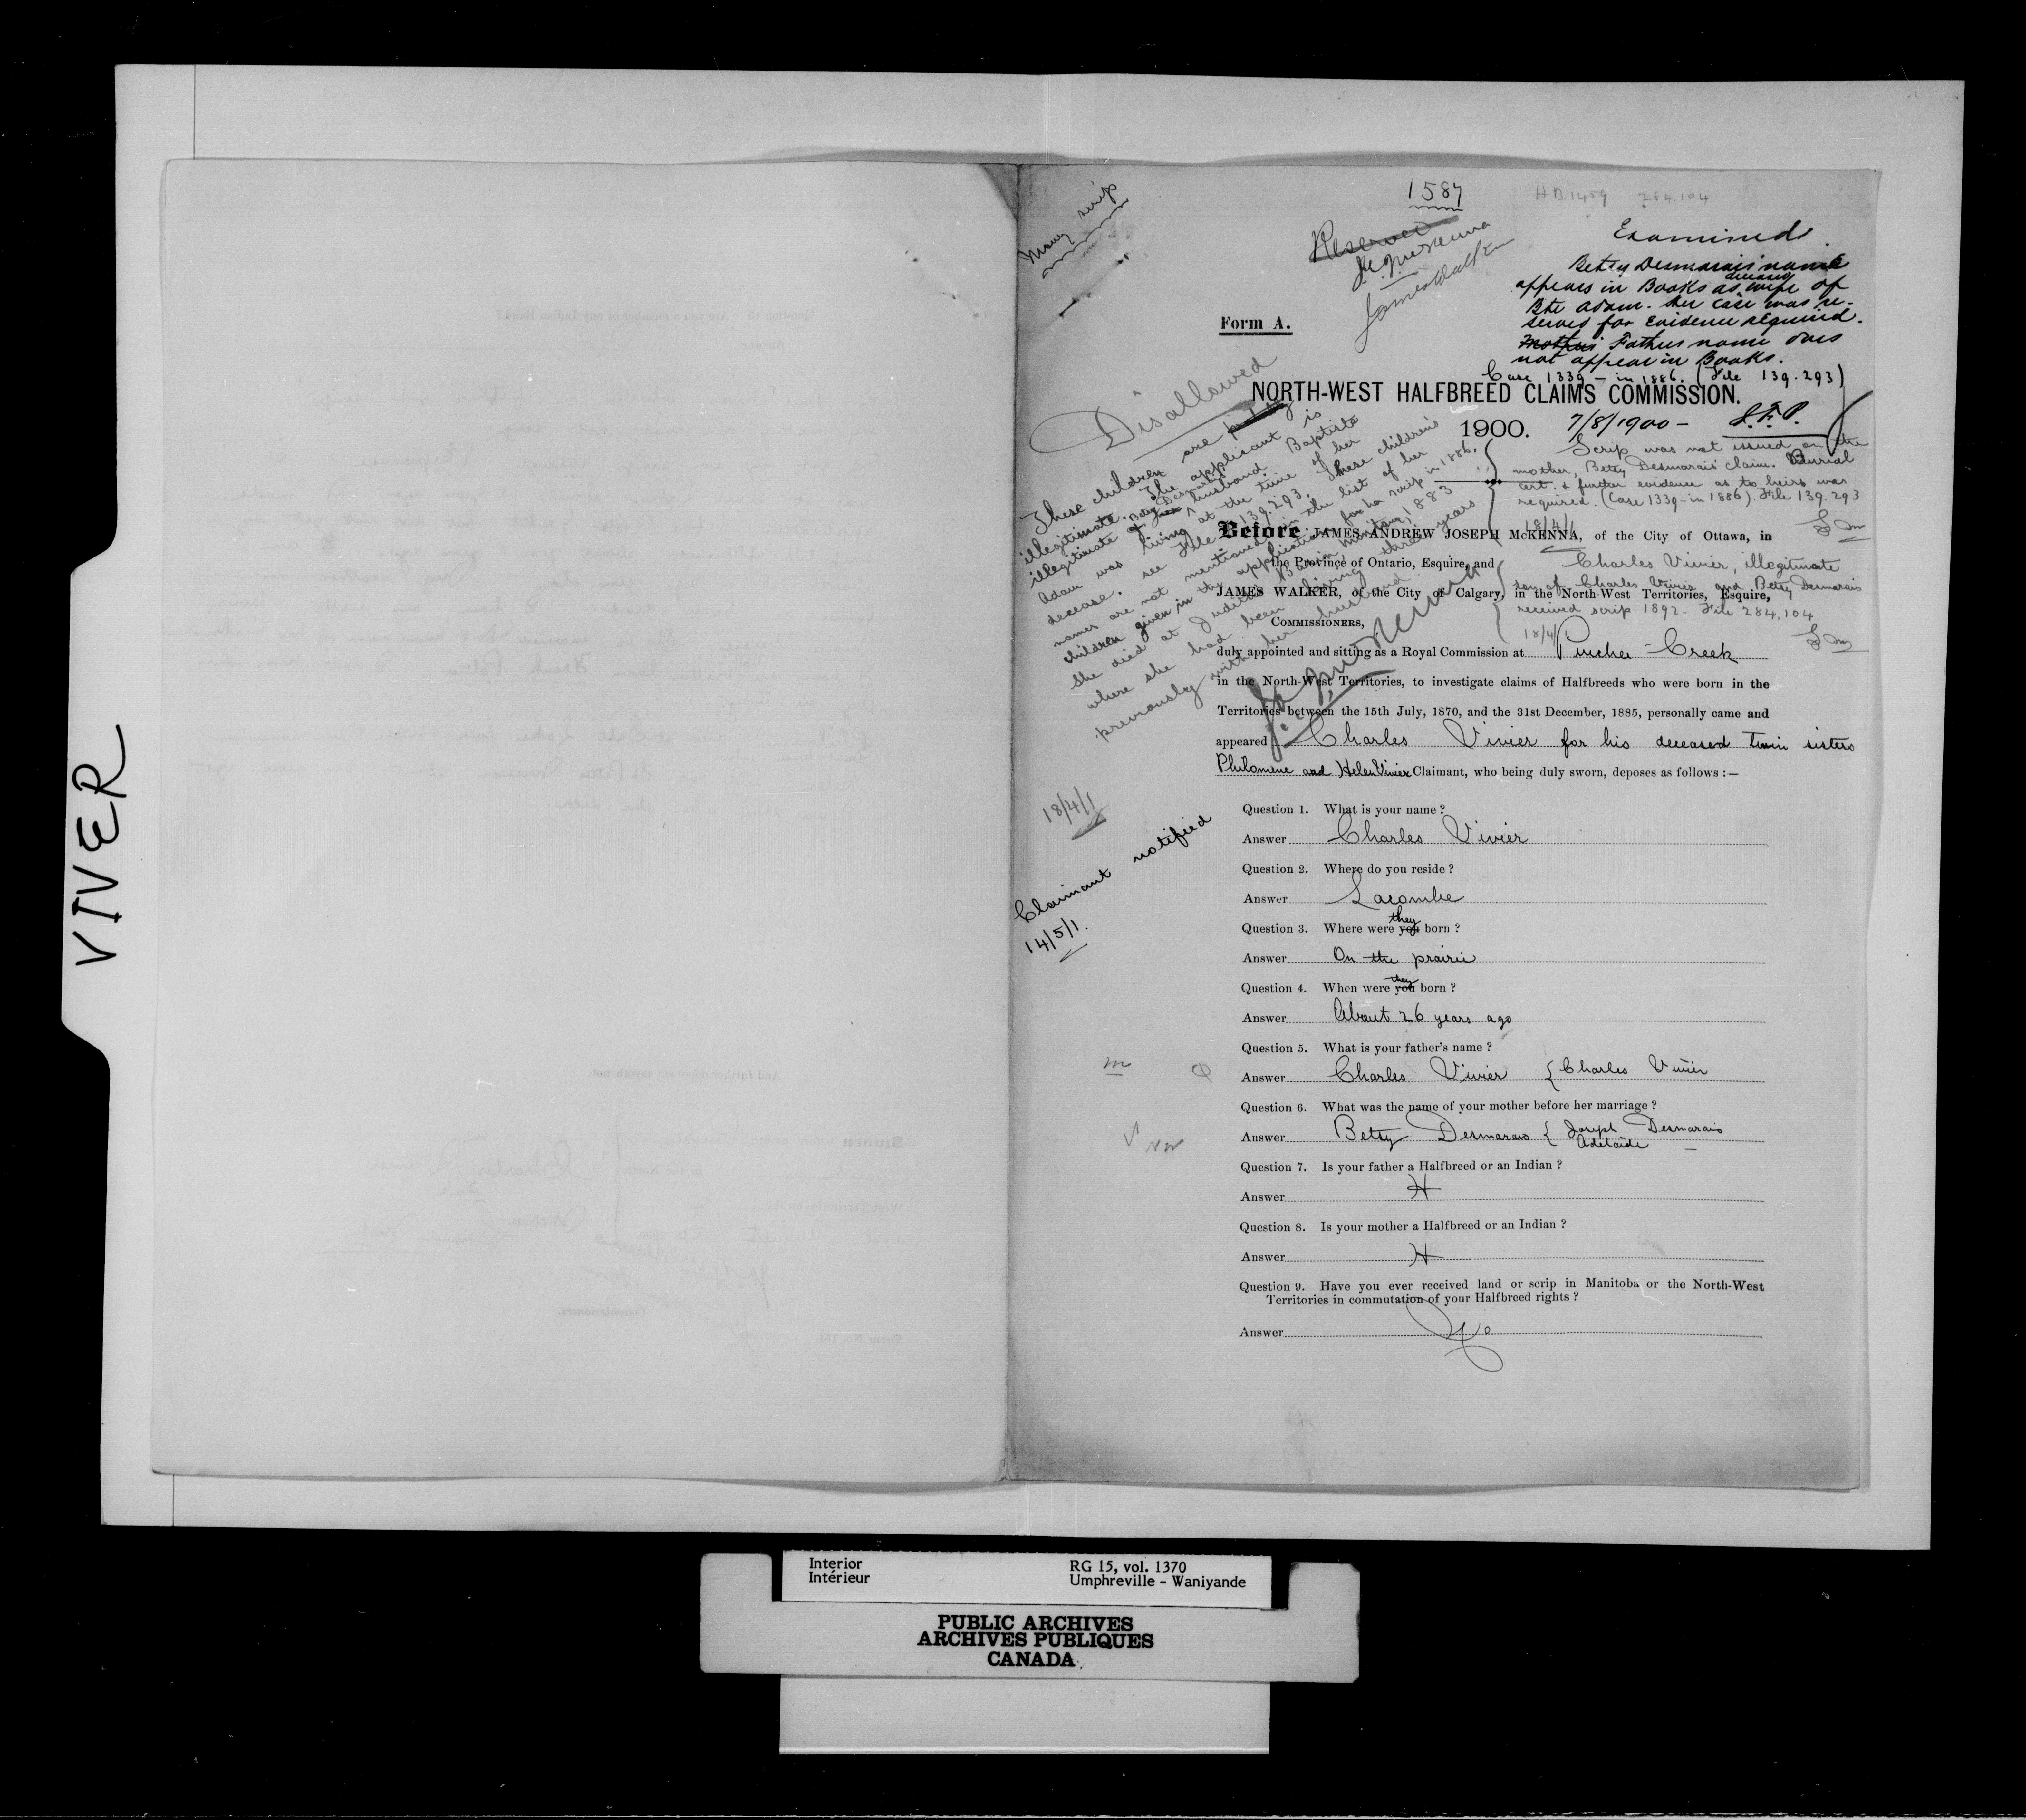 VIVER
Money scrip
1587
HB.1459 284,104
Reserved
J.A.J. McKenna
James Walker
Examined.
Betsy Desmarais' name
appears in Books as deceased wife of
Bte Adam. Her case was re-
served for Evidence required.
Mother's Fathers name does
not appear in Books.
Case 1339 - in 1886. (File 139.293)
Form A.
Disallowed
NORTH-WEST HALFBREED CLAIMS COMMISSION.
1900. 7/8/1900 - J.F.P.
These children are
illegitimate. The applicant is
illegitimate. Betsy Desmarais husband Baptiste
Adam was living at the time of her
decease. see File 139.293. These children's
names are not mentioned in the list of her
children given in the application for her scrip in 1886.
She died at Manitoba, 1883
where she had been living three years
previously with her husband
J.A.J. McKenna
Scrip was not issued on the
mother, Betsy Desmarais' claim. Burial
cert. & further evidence as to heirs was
required. (Case 1339 - in 1886). File 139.293
18/4/1
Before JAMES ANDREW JOSEPH McKENNA, of the City of Ottawa, in
the Province of Ontario, Esquire, and
Charles Vivier, illegitimate
son of Charles Vivier and Betsy Desmarais
JAMES WALKER, of the City of Calgary, in the North-West Territories, Esquire,
received scrip 1892 - File 284,104
COMMISSIONERS,
18/4/1
duly appointed and sitting as a Royal Commission at Pincher Creek
in the North-West Territories, to investigate claims of Halfbreeds who were born in the
Territories between the 15th July, 1870, and the 31st December, 1885, personally came and
appeared Charles Vivier for his deceased twin sisters
Philomene and Helen Vivier Claimant, who being duly sworn, deposes as follows :—
18/4/1
Claimant notified
14/5/1.
Question 1. What is your name ?
Answer Charles Vivier
Question 2. Where do you reside ?
Answer Lacombe
Question 3. Where were you they born ?
Answer On the prairie
Question 4. When were you they born ?
Answer About 26 years ago
Question 5. What is your father's name ?
Answer Charles Vivier { Charles Vivier
Question 6. What was the name of your mother before her marriage ?
Answer Betsy Desmarais { Joseph Desmarais
Adelaide
Question 7. Is your father a Halfbreed or an Indian ?
Answer H
Question 8. Is your mother a Halfbreed or an Indian ?
Answer H
Question 9. Have you ever received land or scrip in Manitoba or the North-West
Territories in commutation of your Halfbreed rights ?
Answer No
Interior
Intérieur
RG 15, vol. 1370
Umphreville - Waniyande
PUBLIC ARCHIVES
ARCHIVES PUBLIQUES
CANADA